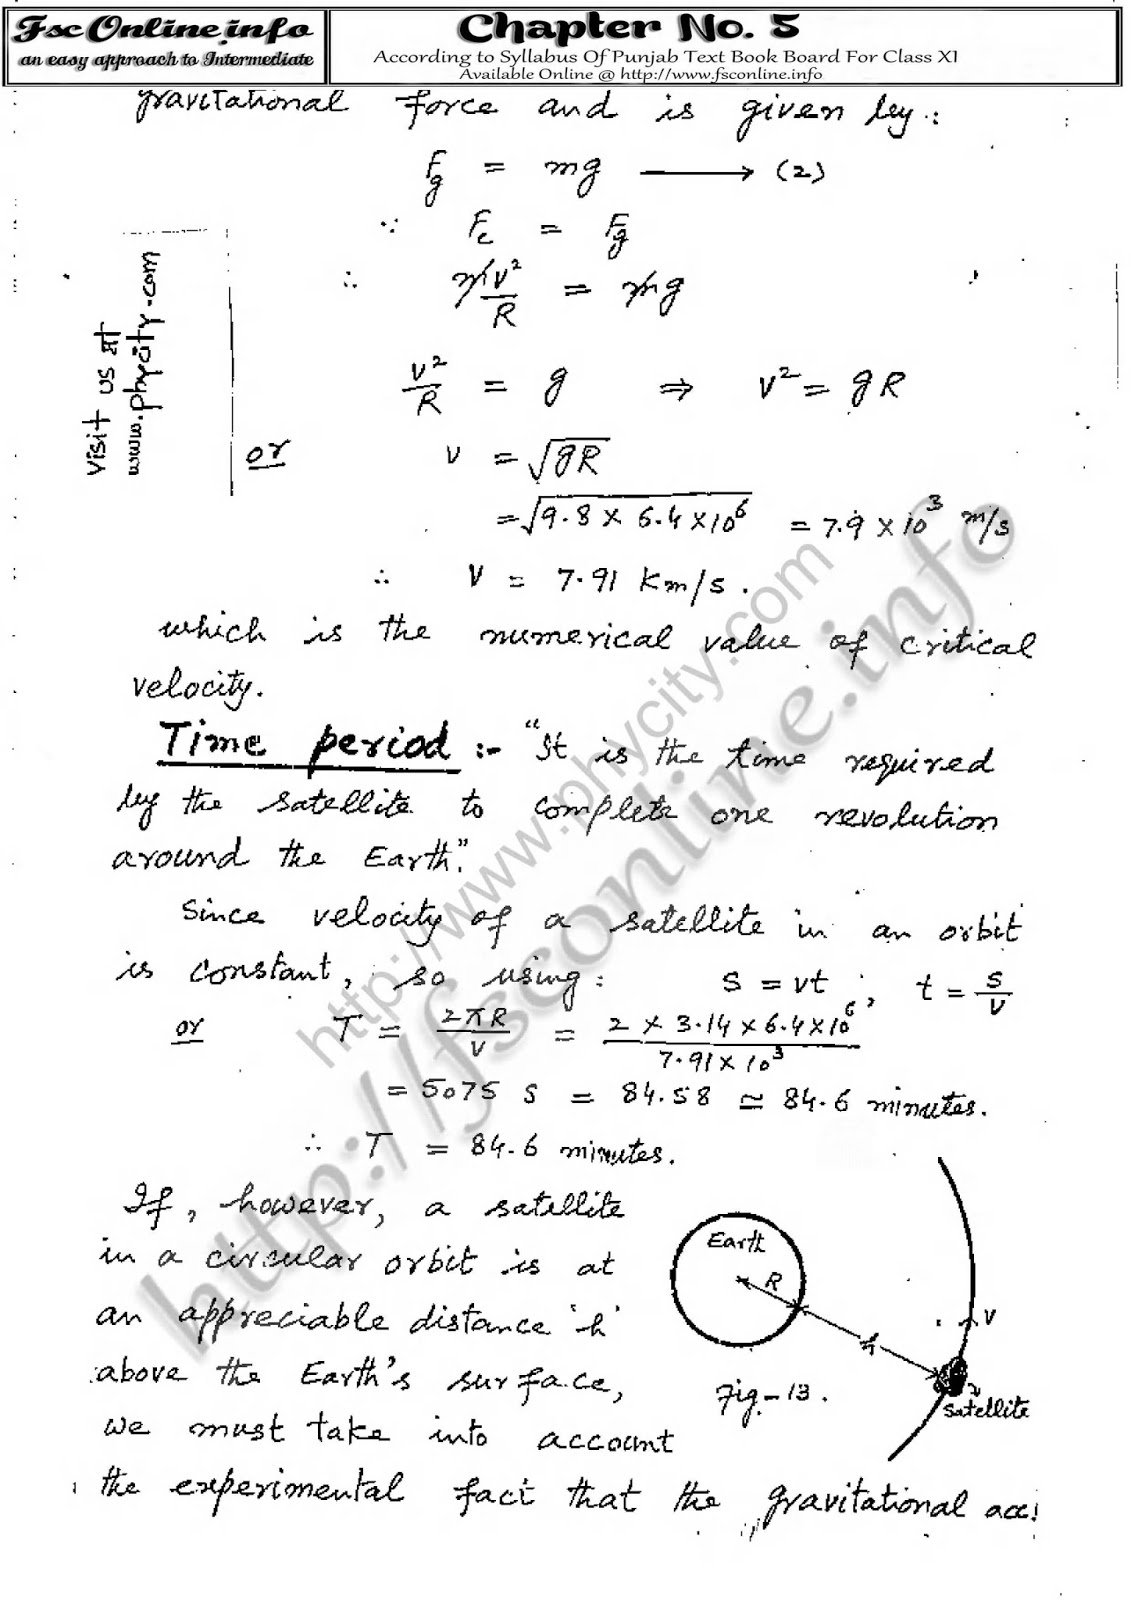 Fsc Online.info
an easy approach to Intermediate
Chapter No. 5
According to Syllabus Of Punjab Text Book Board For Class XI
Available Online @ http://www.fsconline.info
gravitational force and is given by:
Fg = mg ⟶ (2)
∵ Fc = Fg
∴ mv²/R = mg
v²/R = g ⇒ v² = gR
or v = √gR
= √9.8 × 6.4 × 10⁶ = 7.9 × 10³ m/s
∴ V = 7.91 Km/s.
which is the numerical value of critical
velocity.
Time period :- "It is the time required
by the satellite to complete one revolution
around the Earth."
Since velocity of a satellite in an orbit
is constant, so using: S = vt ; t = S/v
or T = 2πR/v = 2 × 3.14 × 6.4 × 10⁶/7.91 × 10³
= 5075 S = 84.58 ≃ 84.6 minutes.
∴ T = 84.6 minutes.
If, however, a satellite
in a circular orbit is at
an appreciable distance 'h'
above the Earth's surface,
we must take into account
the experimental fact that the gravitational acc:
Visit us at
www.phycity.com
Earth
R
h
V
Satellite
Fig-13.
http://www.phycity.com
http://fsconline.info